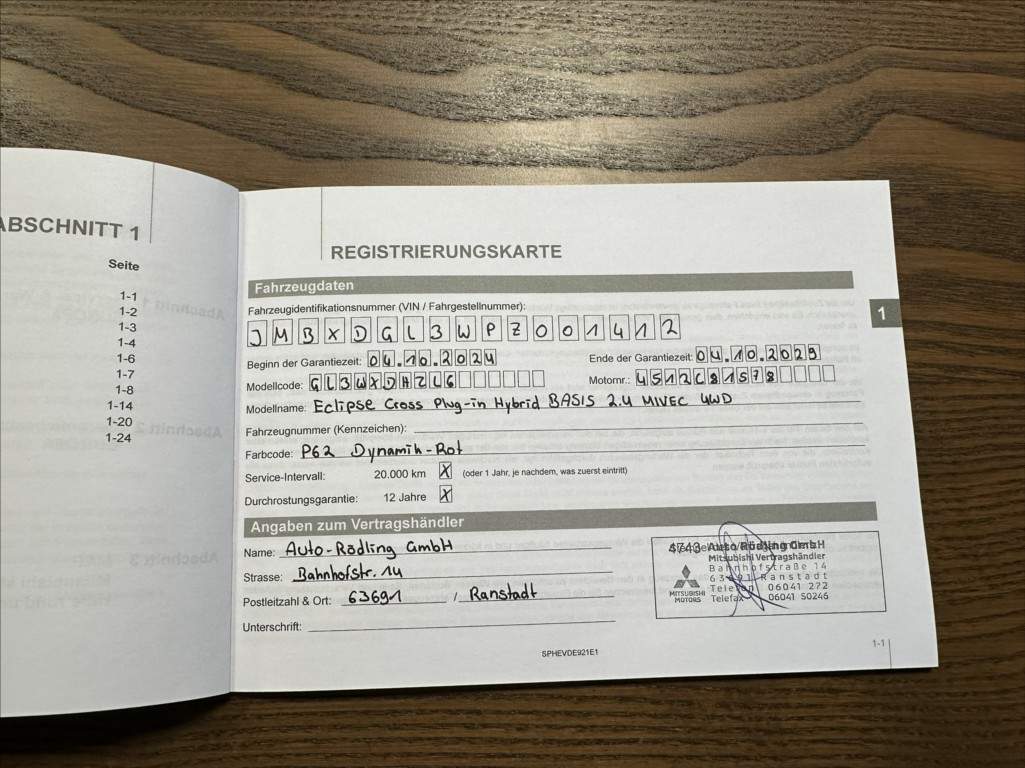 ABSCHNITT 1
Seite
1-1
1-2
1-3
1-4
1-6
1-7
1-8
1-14
1-20
1-24
REGISTRIERUNGSKARTE
Fahrzeugdaten
1
Fahrzeugidentifikationsnummer (VIN / Fahrgestellnummer):
JMBXDGL3WPZ001412
Beginn der Garantiezeit: 04.10.2024 Ende der Garantiezeit: 04.10.2029
Modellcode: GL3WXDHZL6 Motornr.: 4S12C81578
Modellname: Eclipse Cross Plug-in Hybrid BASIS 2.4 MIVEC 4WD
Fahrzeugnummer (Kennzeichen):
Farbcode: P62 Dynamik-Rot
Service-Intervall: 20.000 km X (oder 1 Jahr, je nachdem, was zuerst eintritt)
Durchrostungsgarantie: 12 Jahre X
Angaben zum Vertragshändler
Name: Auto-Rödling GmbH
Strasse: Bahnhofstr. 14
Postleitzahl & Ort: 63691 / Ranstadt
Unterschrift:
4743 Auto Rödling GmbH
Mitsubishi Vertragshändler
Bahnhofstraße 14
63691 Ranstadt
Telefon 06041 272
Telefax 06041 50246
MITSUBISHI
MOTORS
SPHEVDE921E1
1-1